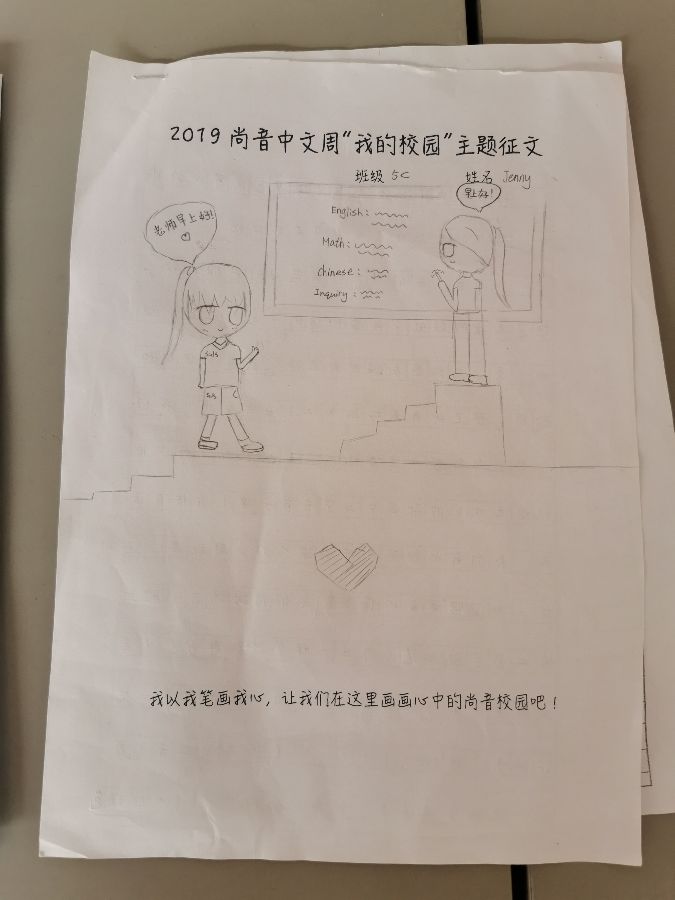 2019尚音中文周“我的校园”主题征文
班级 5C 姓名 Jenny
早上好!
老师早上好!
English:
Math:
Chinese:
Inquiry:
我以我笔画我心，让我们在这里画画心中的尚音校园吧！